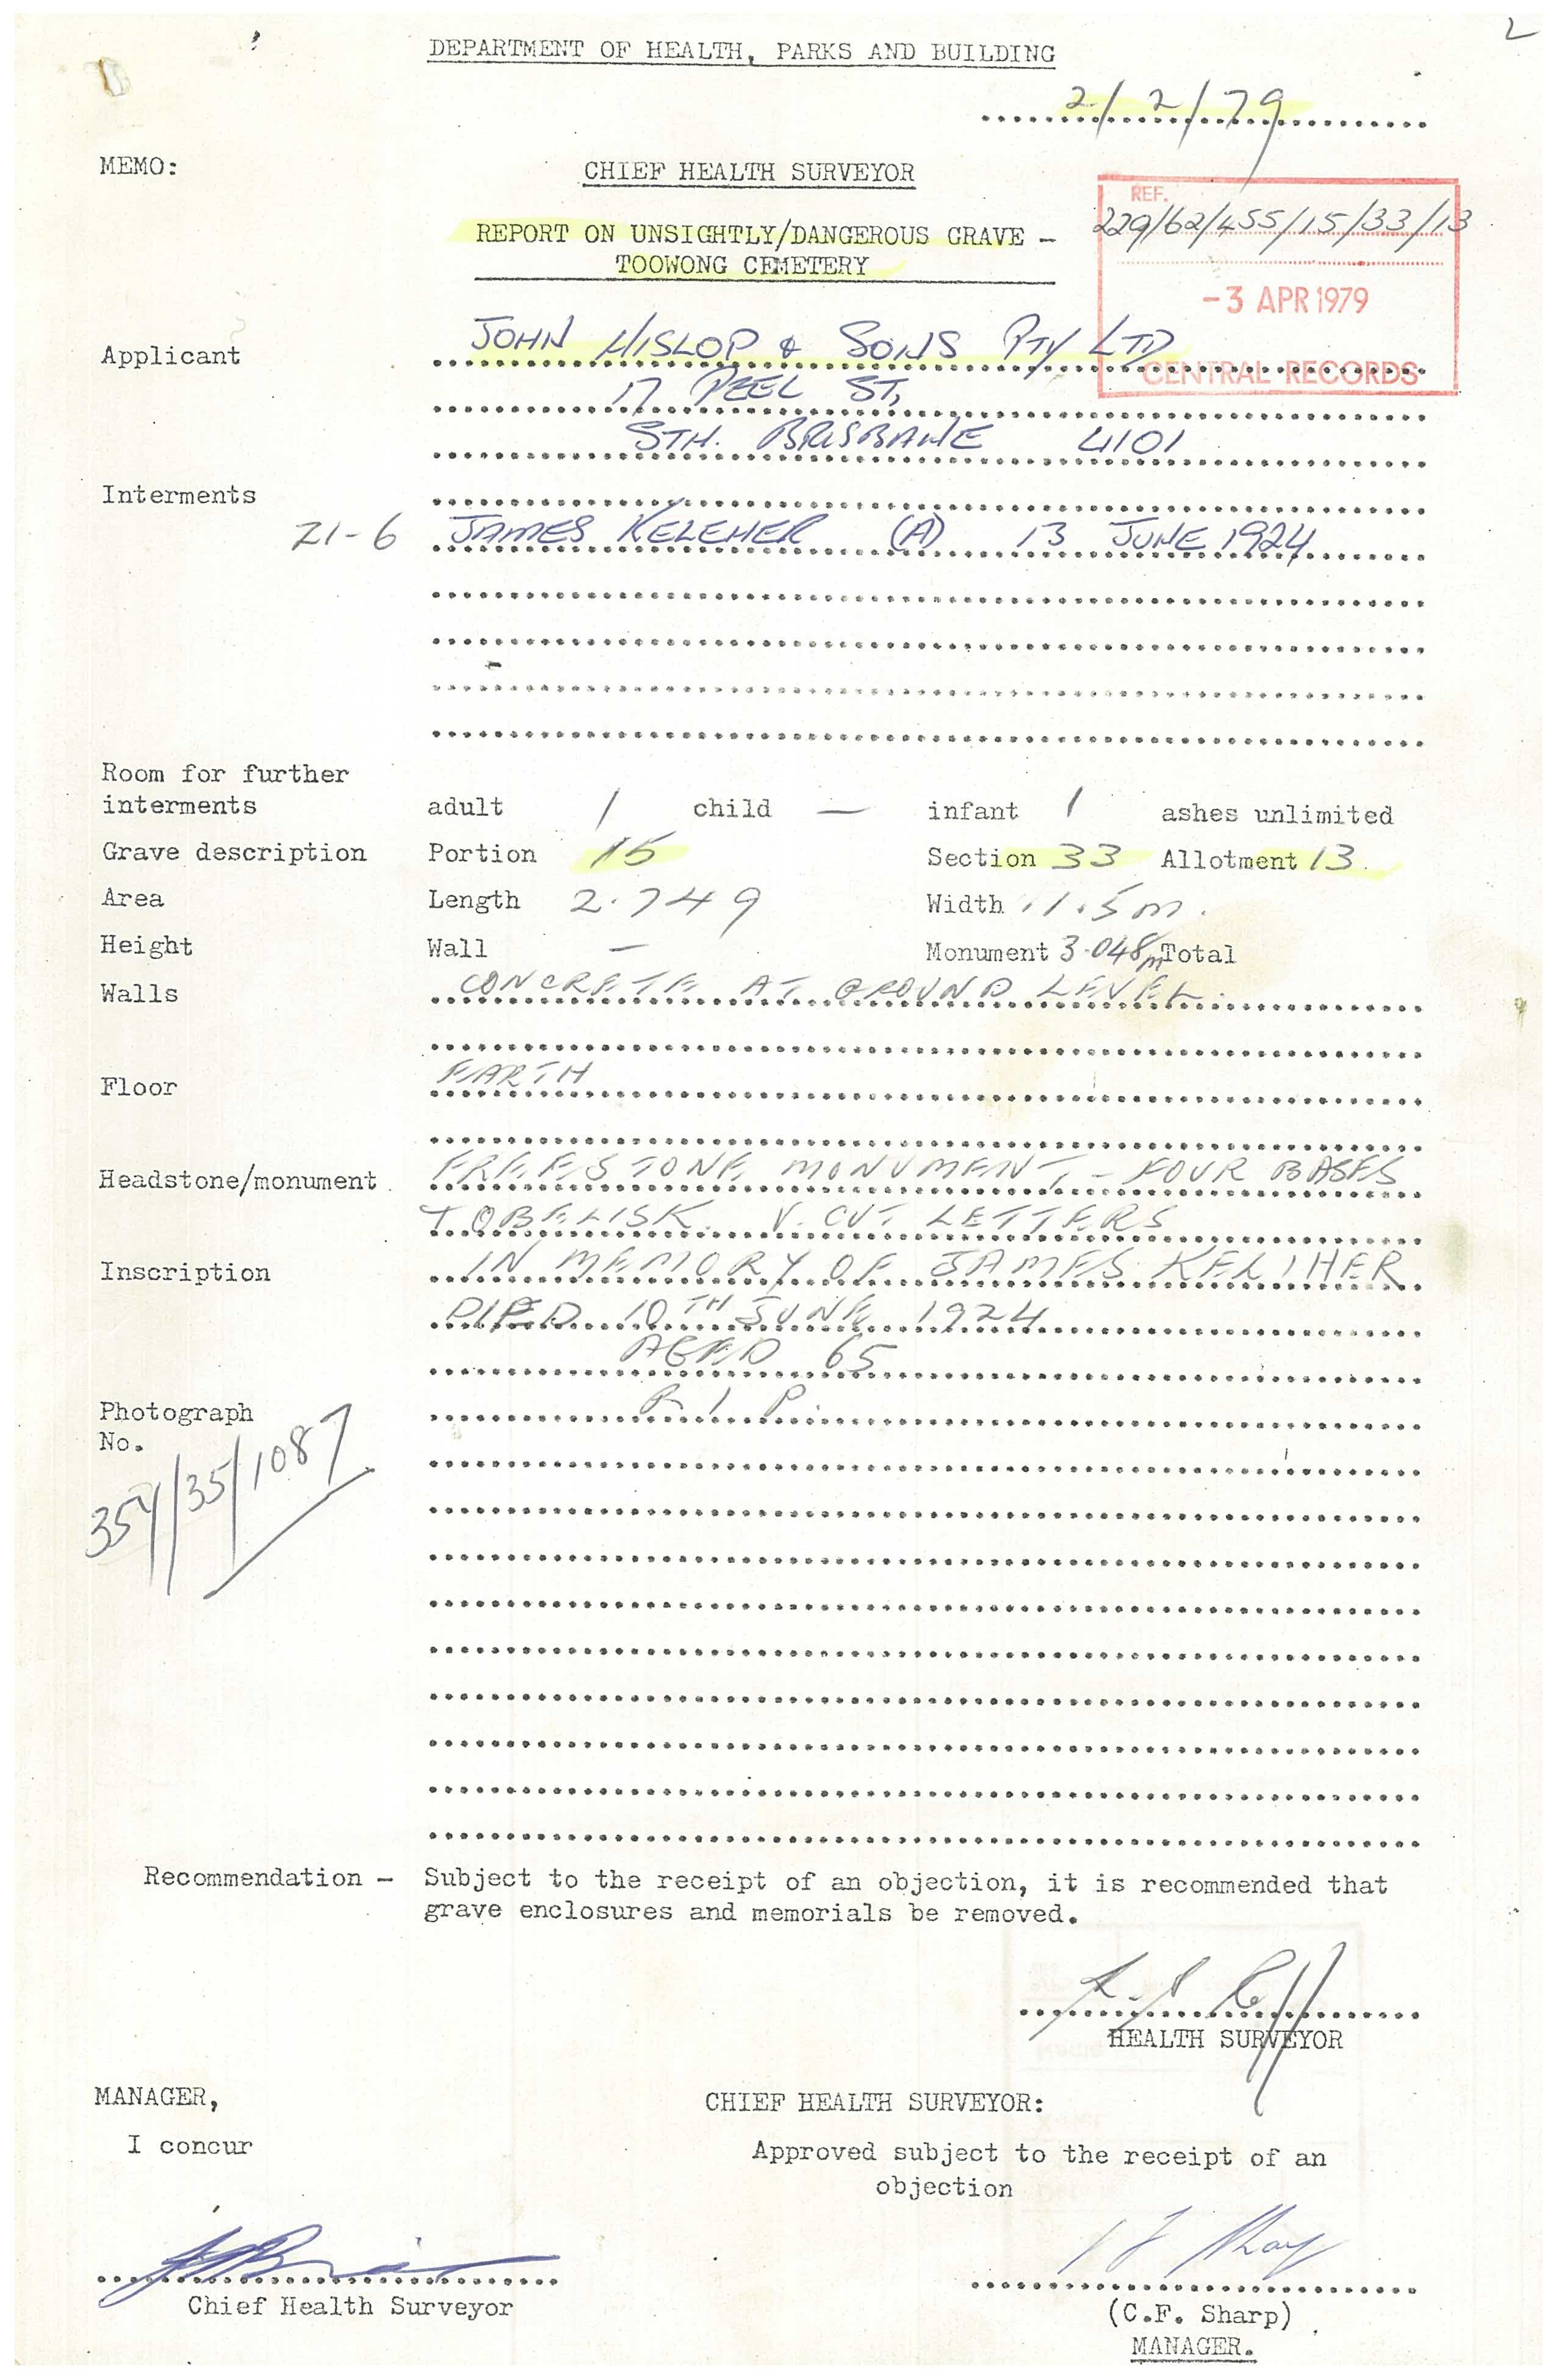 DEPARTMENT OF HEALTH, PARKS AND BUILDING
2/2/79
MEMO:
CHIEF HEALTH SURVEYOR
REPORT ON UNSIGHTLY/DANGEROUS GRAVE –
TOOWONG CEMETERY
REF.
229/62/455/15/33/13
-3 APR 1979
CENTRAL RECORDS
Applicant JOHN HISLOP & SONS PTY LTD
17 PEEL ST,
STH. BRISBANE 4101
Interments
21-6 JAMES KELEHER (A) 13 JUNE 1924
Room for further
interments adult 1 child — infant 1 ashes unlimited
Grave description Portion 15 Section 33 Allotment 13.
Area Length 2.749 Width 1.5m.
Height Wall – Monument 3.048m Total
Walls CONCRETE AT GROUND LEVEL.
Floor EARTH
Headstone/monument FREESTONE MONUMENT – FOUR BASES
+ OBELISK. V. CUT LETTERS
Inscription IN MEMORY OF JAMES KELIHER
DIED 10TH JUNE 1924
AGED 65
R I P.
Photograph
No.
354/35/1087
Recommendation – Subject to the receipt of an objection, it is recommended that
grave enclosures and memorials be removed.
HEALTH SURVEYOR
MANAGER,
I concur
CHIEF HEALTH SURVEYOR:
Approved subject to the receipt of an
objection
Chief Health Surveyor
(C.F. Sharp)
MANAGER.